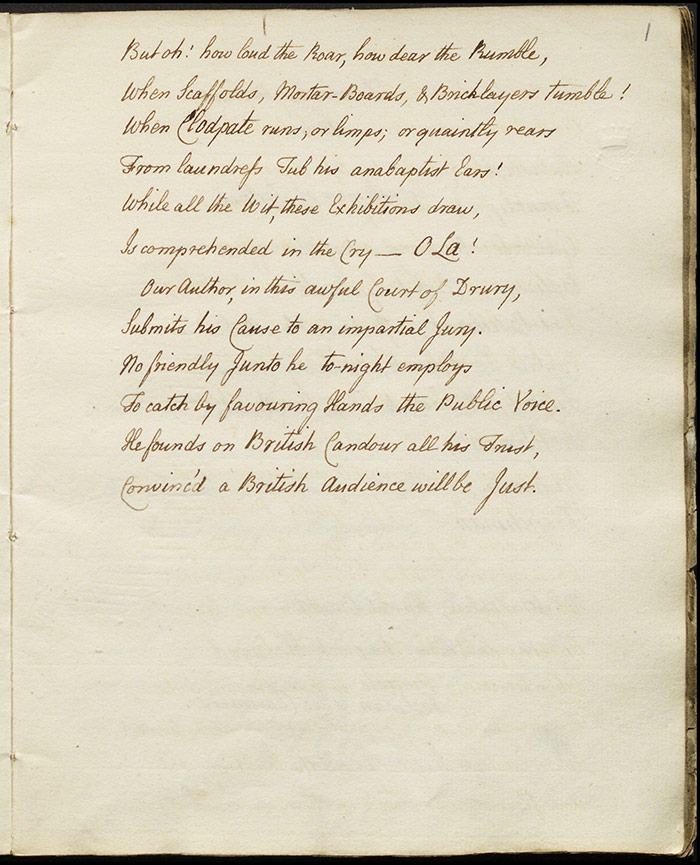 1
But oh! how loud the Roar, how dear the Rumble,
When Scaffolds, Mortar-Boards, & Bricklayers tumble!
When Clodpate runs, or limps; or quaintly rears
From laundreſs Tub his anabaptist Ears!
While all the Wit, these Exhibitions draw,
Is comprehended in the Cry — O La!
Our Author, in this awful Court of Drury,
Submits his Cause to an impartial Jury.
No friendly Junto he to-night employs
To catch by favouring Hands the Public Voice.
He founds on British Candour all his Trust,
Convinc'd a British Audience will be Just.